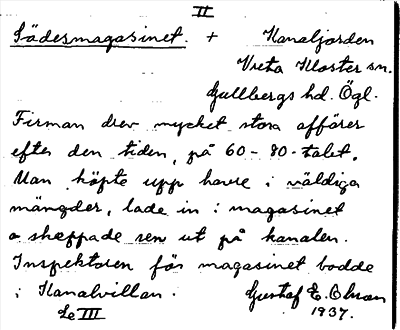 II
Sädesmagasinet. + Kanaljorden
Vreta Kloster sn.
Gullbergs hd. Ögl.
Firman drev mycket stora affärer
efter den tiden, på 60-80-talet.
Man köpte upp havre i väldiga
mängder, lade in i magasinet
o skeppade sen ut på kanalen.
Inspektoren för magasinet bodde
i Kanalvillan. Gustaf E. Olsson
Se III 1937.